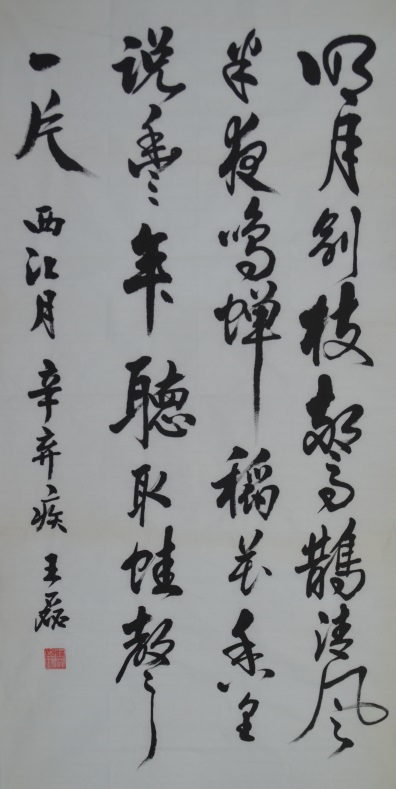 明月别枝驚鵲清风
半夜鸣蝉稻花香里
说豐年聽取蛙聲
一片 西江月 辛弃疾 王磊